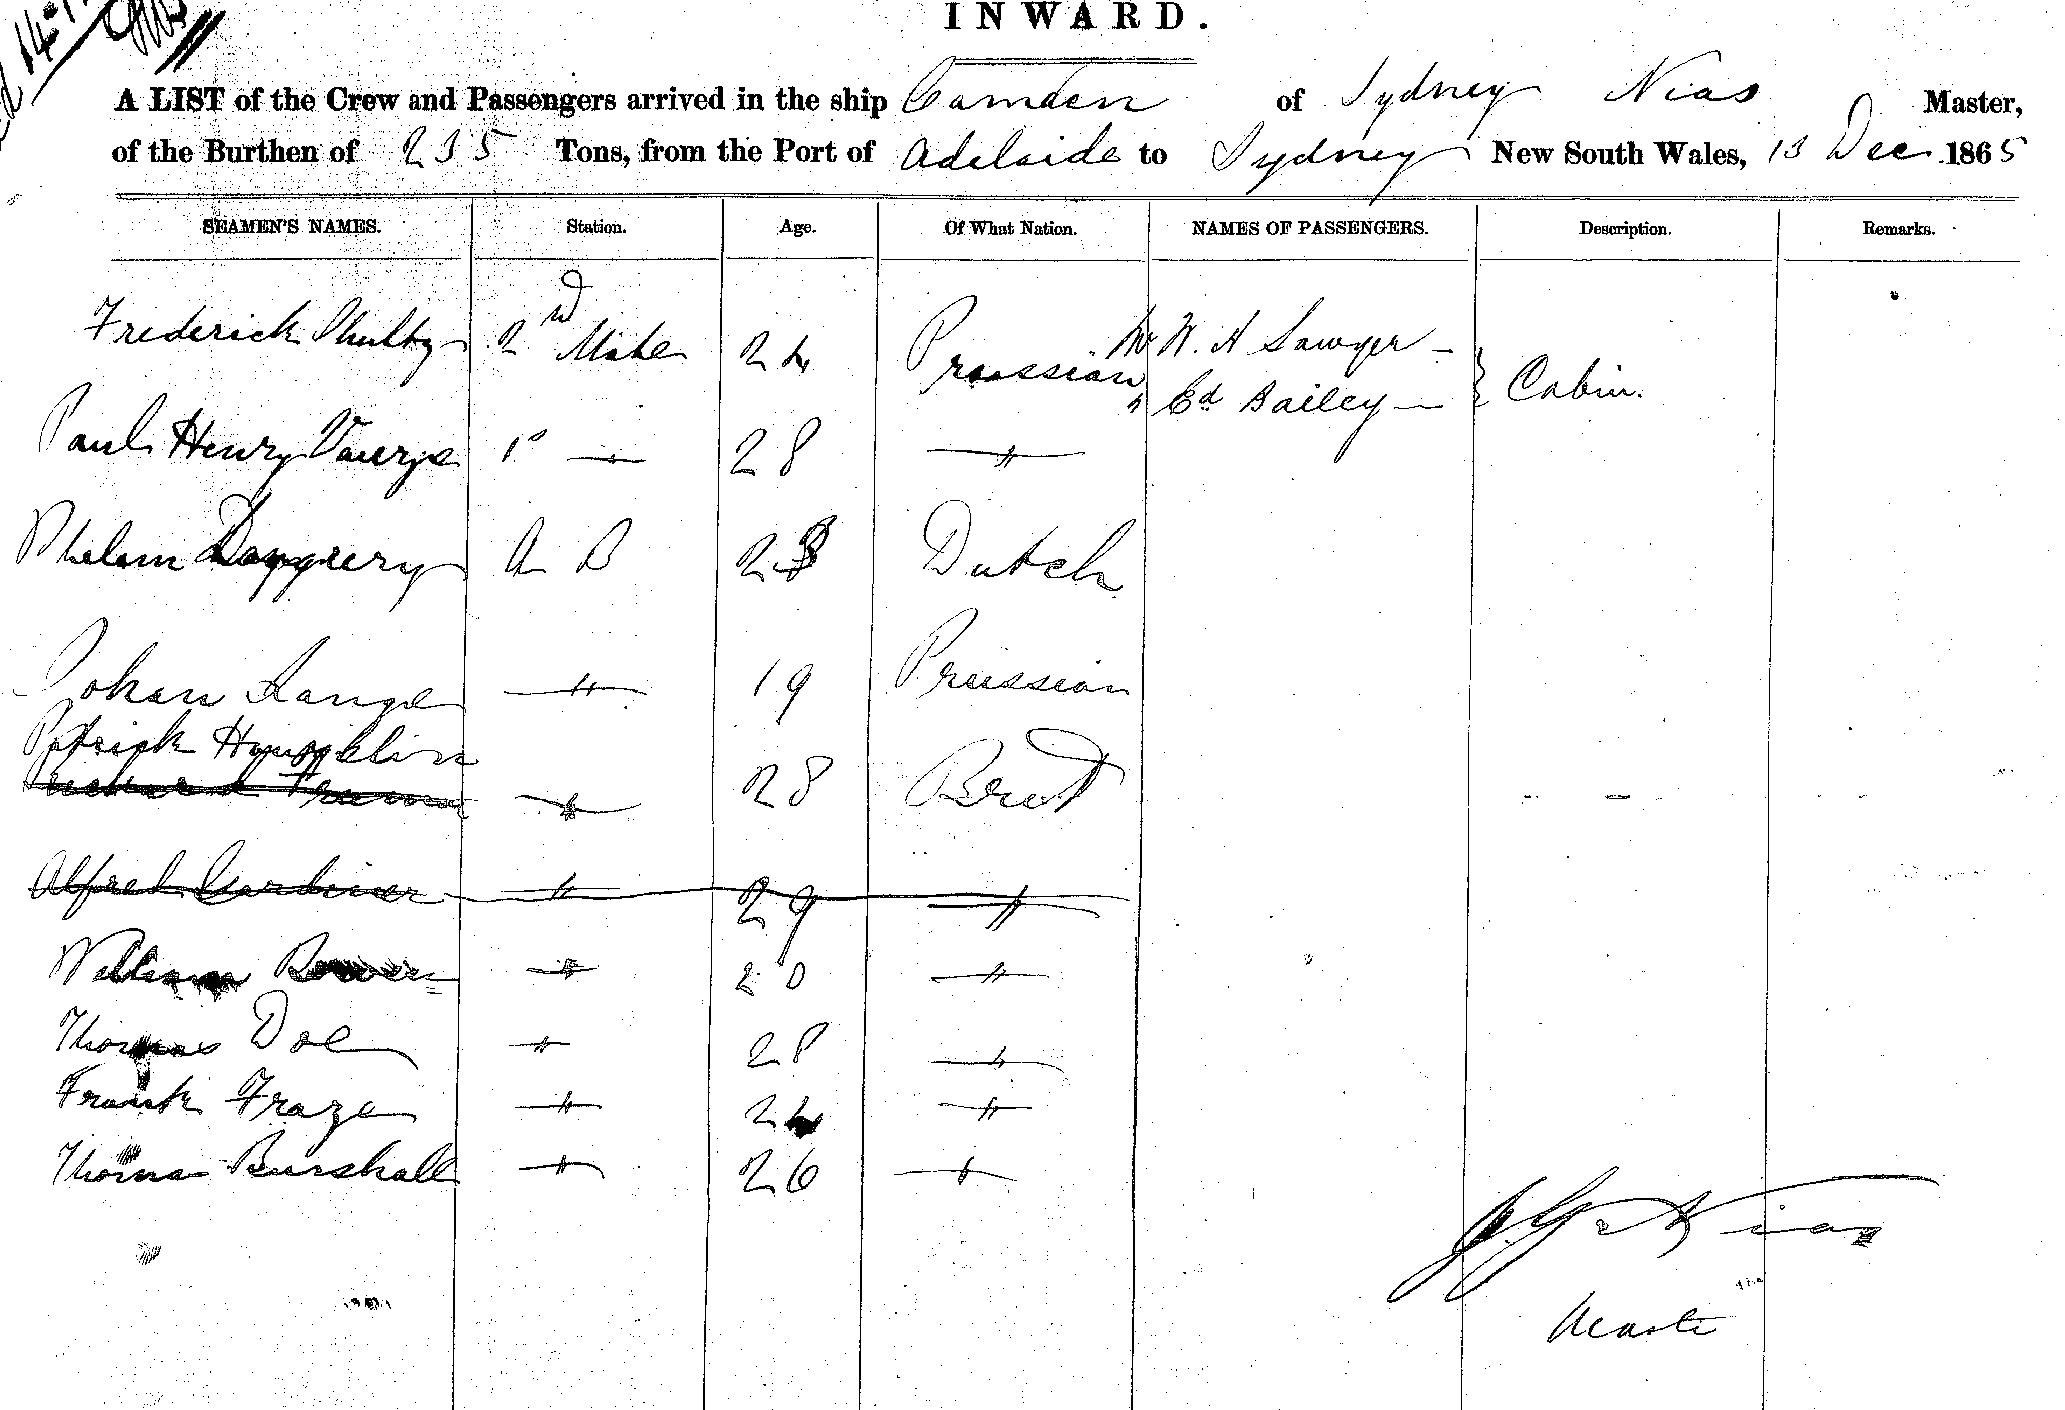 INWARD.
A LIST of the Crew and Passengers arrived in the ship Camden of Sydney Nias Master,
of the Burthen of 235 Tons, from the Port of Adelaide to Sydney New South Wales, 13 Dec 1865
SEAMEN'S NAMES. Station. Age. Of What Nation. NAMES OF PASSENGERS. Description. Remarks.
Frederick Shultz 2nd Mate 24 Prussian Mr W. H Sawyer –
" Ed Bailey – Cabin.
Paul Henry 1s — " — 28 — " —
A B 23 Dutch
Johan Lange — " — 19 Prussian
Patrick
— " — 28 Brit
Alfred Gardiner — " — 29 — " —
William Bowen — " — 20 — " —
Thomas Doe — " — 28 — " —
Frank Fraze — " — 24 — " —
Thomas Burshall — " — 26 — " —
J. G. Nias
Master